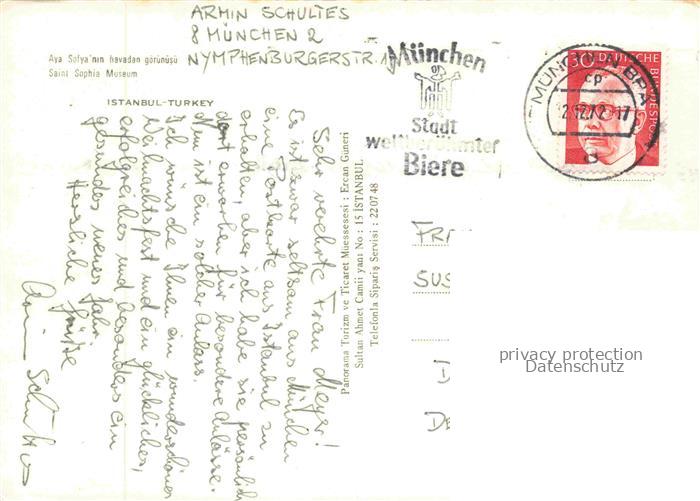 ARMIN SCHULTES
8 MÜNCHEN 2
NYMPHENBURGERSTR.
Aya Sofya'nın havadan görünüşü
Saint Sophia Museum
ISTANBUL-TURKEY
Sehr verehrte Frau Meyer!
Es ist zwar seltsam aus München
eine Postkarte aus Istanbul zu
erhalten, aber ich habe sie persönlich
dort erworben für besondere Anlässe.
dem ist ein solcher Anlass.
Ich wünsche Ihnen ein wunderschönes
Weihnachtsfest und ein glückliches,
erfolgreiches und besonders ein
gesundes neues Jahr.
Herzliche Grüße
Armin Schultes
Panorama Turizm ve Ticaret Muessesesi : Ercan Güneri
Sultan Ahmet Camii yanı No : 15 İSTANBUL
Telefonla Sipariş Servisi : 22 07 48
München
Stadt
weltberühmter
Biere
MÜNCHEN BPA
cp
2.12.72-17
d
30
DEUTSCHE BUNDESPOST
FR
SUS
D
DE
privacy protection
Datenschutz